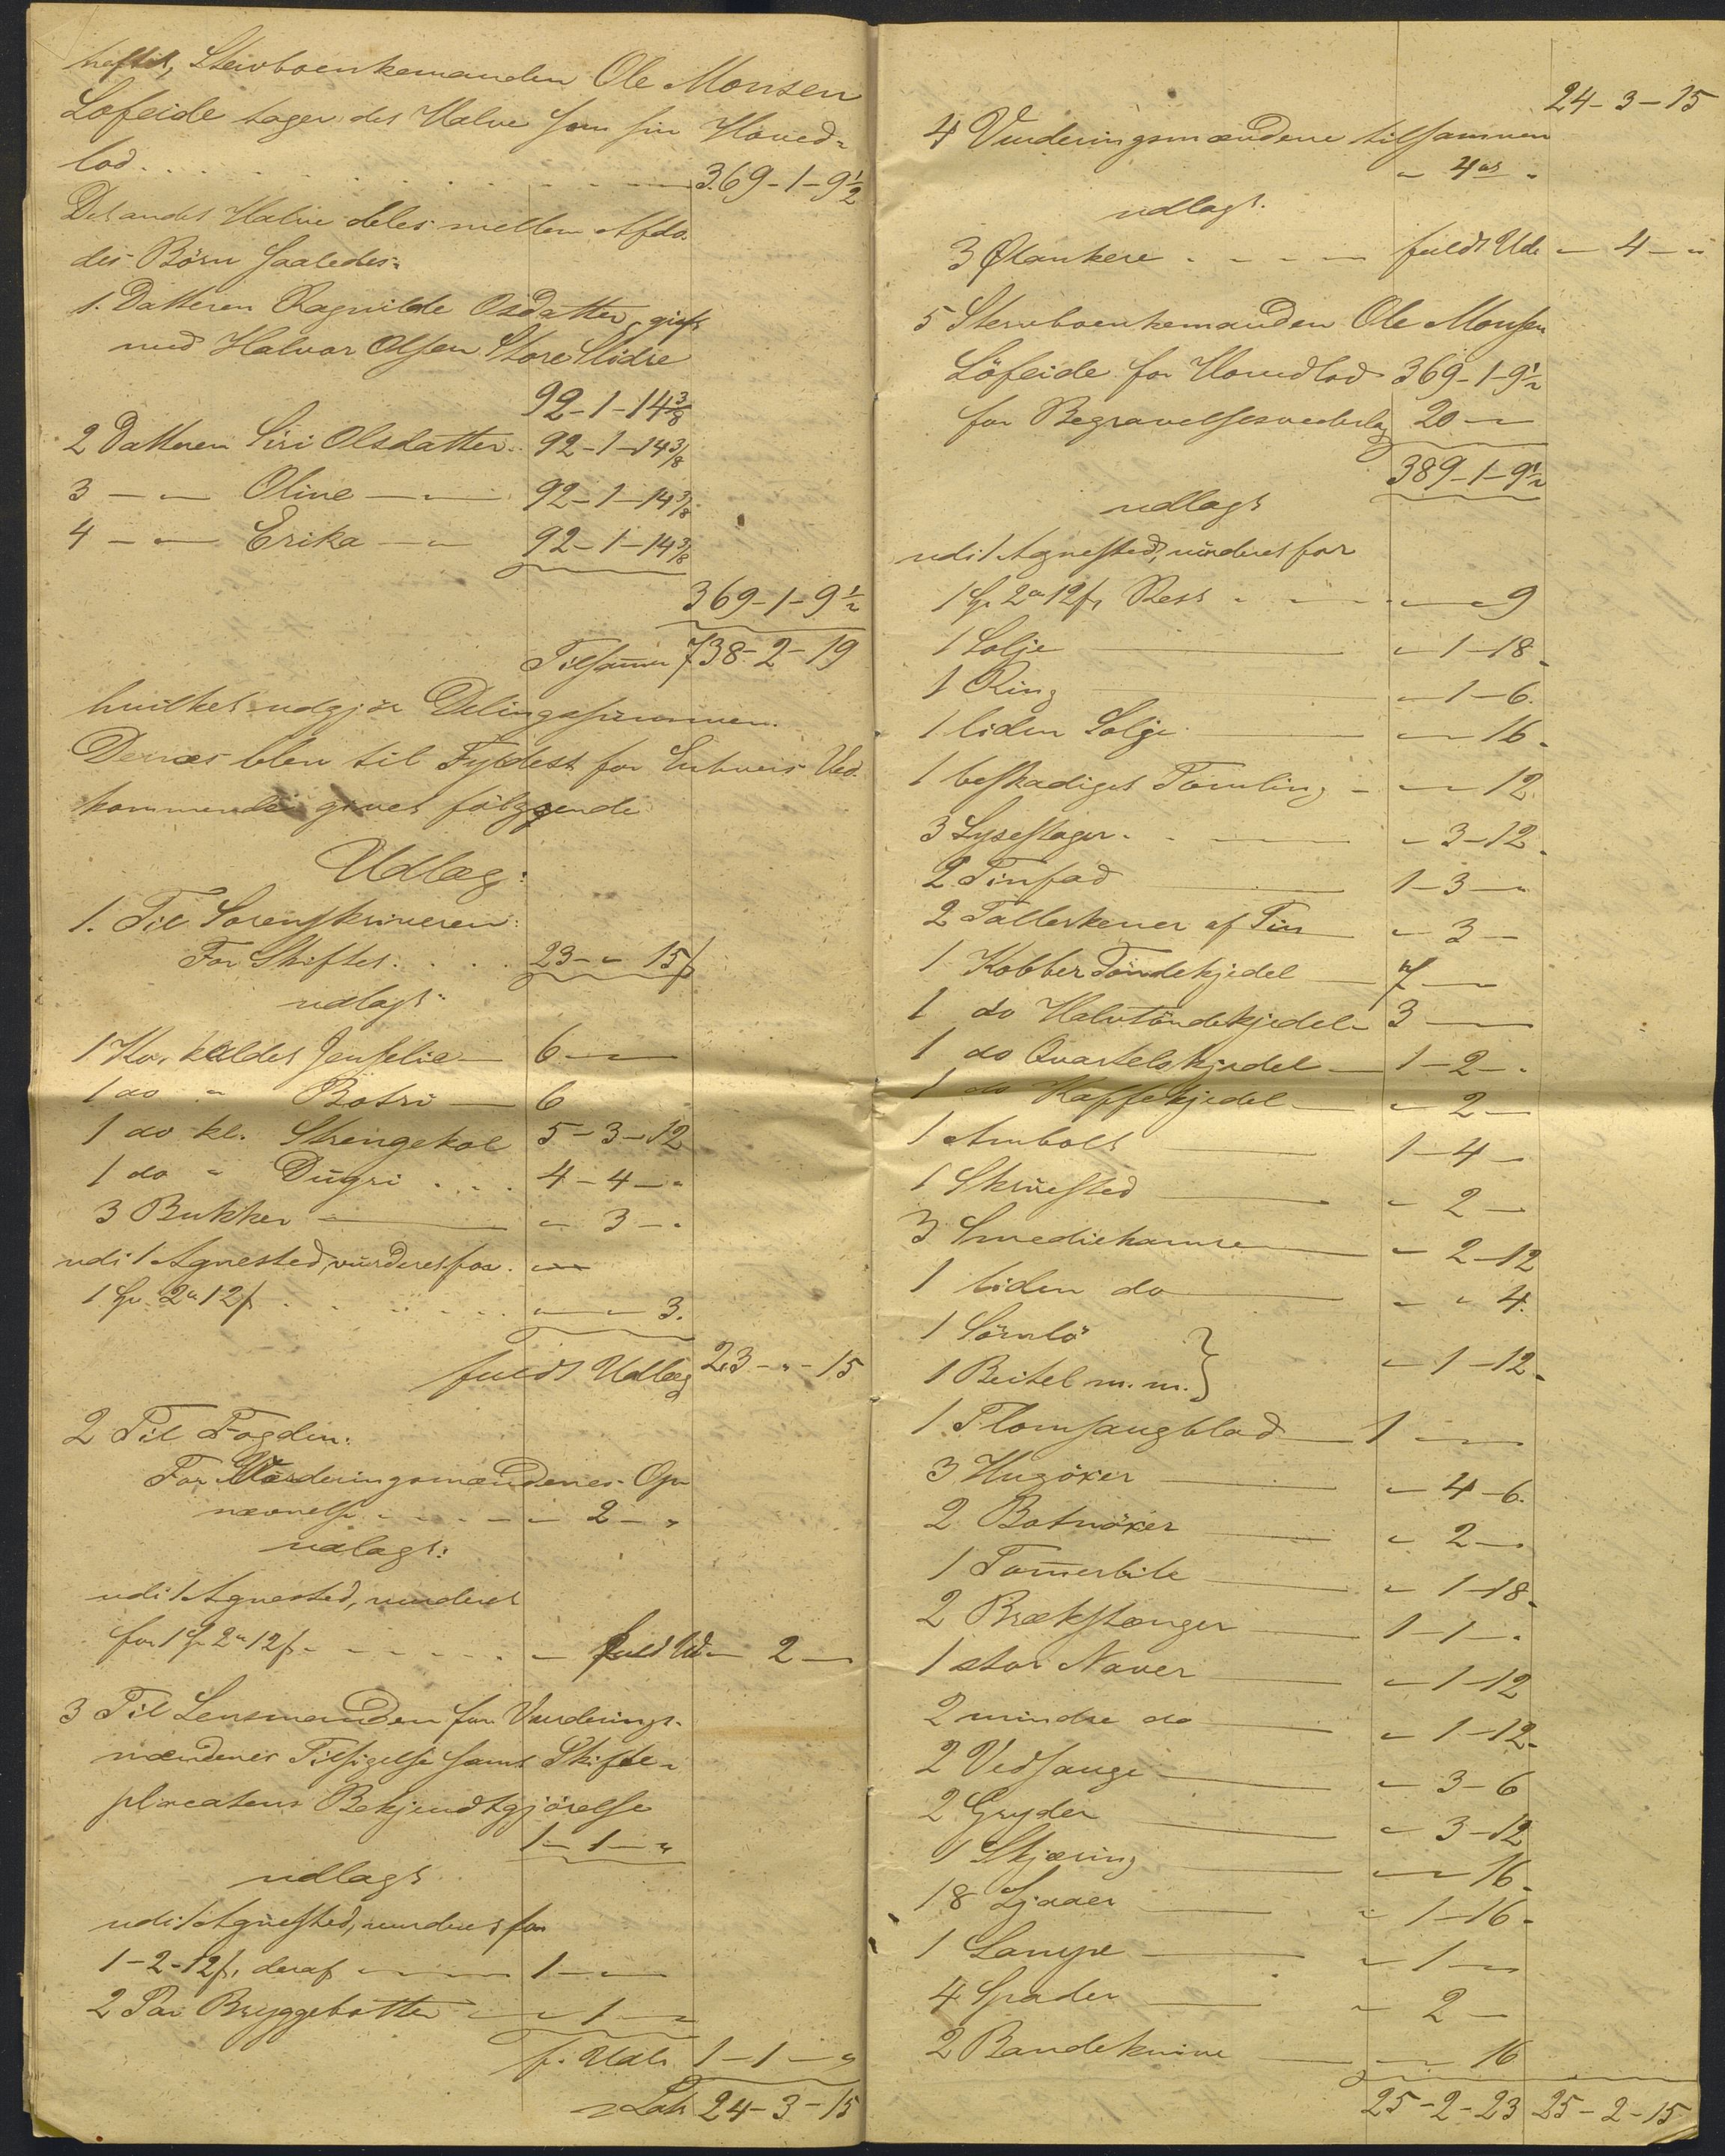 heftet, Stervboenkemanden Ole Monsen
Lofeide tager det Halve som sin Hoved-
lod. . . . 369-1-9½
Det andet Halve deles mellem Afdö-
des Börn saaledes:
1. Datteren Ragnilde Osdatter, gift
med Halvor Olsen Store Slidre
92-1-14⅜
2 Datteren Siri Olsdatter.. 92-1-14⅜
3 — " — Oline — " — 92-1-14⅜
4 — " — Erika — " — 92-1-14⅜
369-1-9½
Tilsammen 738-2-19
hvilket udgjör Delingssummen.
Dernæs blev til Fyldest for Enhvers Ved-
kommende givet fölggende
Udlæg:
1. Til Sorenskriveren:
For Skiftet. . . . 23-"-15ſ
udlagt:
1 Ko, kaldet Jenselie — 6 — "
1 do " Botri — 6
1 do kl. Strengekol 5-3-12
1 do " Dugri . . . 4-4-"
3 Bukker — "-3-"
udi 1 Agnested, vürderet for.
1 Sp. 2 " 12ſ . . . "-"-3.
fuldt Udlæg 23-"-15
2 Til Fogden:
For Vurderingsmændenes Op-
nævnelse . . . "-2-"
udlagt:
udi 1 Agnested, vurderet
for 1 Sp 2 " 12ſ . . . fuld Ud. "-2-"
3 Til Lensmanden for Vurderings-
mændenes Tilsigelse samt Skifte-
placatens Bekjendtgjörelse
1-1-"
udlagt
udi 1 Agnested, vurderet for
1-2-12ſ, deraf — 1-"
2 Par Bryggebötter "-1-"
f. Udl. 1-1-"
Lat. 24-3-15
24-3-15
4 Vurderingsmændene tilsammen
"-4 ort "
udlagt.
3 Ølankere . . . fuldt Udl. "-4-"
5 Stervboenkemanden Ole Monsen
Löfeide for Hovedlod 369-1-9½
for Begravelsesvederlag 20-"
389-1-9½
udlagt
udi 1 Agnested, vürderet for
1 Sp. 2 " 12ſ, Rest . . . "-"-9
1 Solje "-1-18
1 Ring "-1-6.
1 liden Solje "-"-16
1 beskadiget Tömling "-"-12
3 Lysestager "-3-12
2 Tinfad 1-3-"
2 Tallerkener af Tin "-3-
1 Kobber Töndekjedel 7-"
1 do Halvtöndekjedel 3-"
1 do Qvartelskjedel 1-2-"
1 do Kaffekjedel "-2-
1 Ambolt 1-4-
1 Skruested "-2-
3 Smediehamre "-2-12
1 liden do "-"-4.
1 Sömlö
1 Beitel m. m. } "-1-12
1 Flomsaugblad 1-"
3 Hugöxer "-4-6.
2 Botnöxer "-2-"
1 Tömmerbile "-1-18
2 Brækstænger 1-1-"
1 stor Naver "-1-12
2 mindre do "-1-12
2 Vedsauge "-3-6
2 Gryder "-3-12
1 Skjæring "-"-16
18 Ljaaer "-1-16
1 Lampe "-1-"
4 Spader "-2-
2 Bandeknive "-"-16
25-2-23 25-2-15